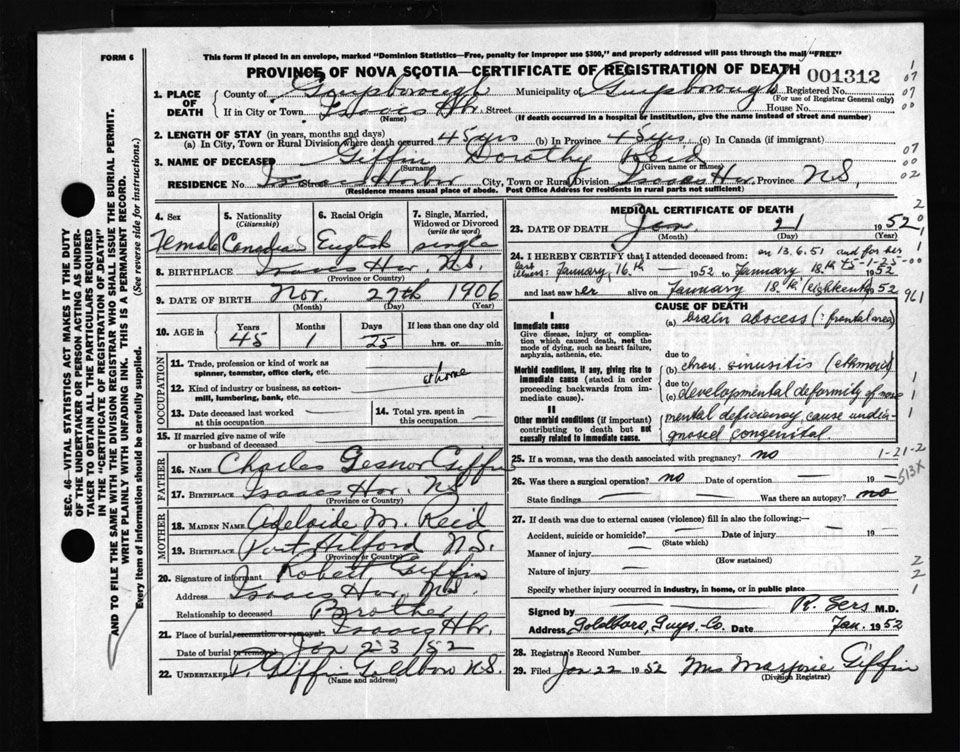 FORM 6
This form if placed in an envelope, marked "Dominion Statistics—Free, penalty for improper use $300," and properly addressed will pass through the mail "FREE"
PROVINCE OF NOVA SCOTIA—CERTIFICATE OF REGISTRATION OF DEATH 001312
1. PLACE OF DEATH County of Guysborough Municipality of Guysborough Registered No.
(For use of Registrar General only)
If in City or Town Isaacs Hbr. Street House No.
(Name) (If death occurred in a hospital or institution, give the name instead of street and number)
2. LENGTH OF STAY (in years, months and days)
(a) In City, Town or Rural Division where death occurred 45 yrs (b) In Province 45 yrs. (c) In Canada (if immigrant)
3. NAME OF DECEASED Giffin Dorothy Reid
(Surname) (Given name or names)
RESIDENCE No. Isaacs Harbor Street City, Town or Rural Division Isaacs Hbr. Province N.S.
(Residence means usual place of abode. Post Office Address for residents in rural parts not sufficient)
4. Sex Female
5. Nationality (Citizenship) Canadian
6. Racial Origin English
7. Single, Married, Widowed or Divorced (write the word) single
8. BIRTHPLACE Isaacs Har. N.S.
(Province or Country)
9. DATE OF BIRTH Nov. 27th 1906
(Month) (Day) (Year)
10. AGE in Years 45 Months 1 Days 25 If less than one day old hrs. or min.
OCCUPATION
11. Trade, profession or kind of work as spinner, teamster, office clerk, etc. at home
12. Kind of industry or business, as cotton-mill, lumbering, bank, etc. —
13. Date deceased last worked at this occupation —
14. Total yrs. spent in this occupation —
15. If married give name of wife or husband of deceased
FATHER
16. NAME Charles Gesnor Giffin
17. BIRTHPLACE Isaacs Har. N.S.
(Province or Country)
MOTHER
18. MAIDEN NAME Adelaide M. Reid
19. BIRTHPLACE Port Hilford N.S.
(Province or Country)
20. Signature of informant Robert Giffin
Address Isaacs Har. N.S.
Relationship to deceased Brother
21. Place of burial, cremation or removal. Isaacs Hbr.
Date of burial or removal Jan 23/52
22. UNDERTAKER P. Giffin Goldboro N.S.
(Name and address)
MEDICAL CERTIFICATE OF DEATH
23. DATE OF DEATH Jan 21 1952
(Month) (Day) (Year)
24. I HEREBY CERTIFY that I attended deceased from: on 13.6.51 and for her
last illness: January, 16th 1952 to January 18th 1952
and last saw her alive on January 18th (eighteenth) 1952
CAUSE OF DEATH
I
Immediate cause
Give disease, injury or complication which caused death, not the mode of dying, such as heart failure, asphyxia, asthenia, etc.
(a) brain abscess (: frontal area)
due to
Morbid conditions, if any, giving rise to immediate cause (stated in order proceeding backwards from immediate cause).
(b) chron. sinusitis (ethmoid)
due to
(c) developmental deformity of nose
II
Other morbid conditions (if important) contributing to death but not causally related to immediate cause.
mental deficiency, cause undiagnosed congenital.
25. If a woman, was the death associated with pregnancy? no
26. Was there a surgical operation? no Date of operation — 19 —
State findings — Was there an autopsy? no
27. If death was due to external causes (violence) fill in also the following:—
Accident, suicide or homicide? — Date of injury — 19
(State which)
Manner of injury —
(How sustained)
Nature of injury —
Specify whether injury occurred in industry, in home, or in public place
Signed by R. Gers M.D.
Address Goldboro, Guys. Co. Date Jan. 1952
28. Registrar's Record Number
29. Filed Jan 22 1952 Mrs Marjorie Giffin
(Division Registrar)
1-21-2
513X
961
SEC. 46—VITAL STATISTICS ACT MAKES IT THE DUTY
OF THE UNDERTAKER OR PERSON ACTING AS UNDERTAKER TO OBTAIN ALL THE PARTICULARS REQUIRED
IN THE "CERTIFICATE OF REGISTRATION OF DEATH"
AND TO FILE THE SAME WITH THE DIVISION REGISTRAR WHO SHALL ISSUE THE BURIAL PERMIT.
WRITE PLAINLY WITH UNFADING INK. THIS IS A PERMANENT RECORD.
Every item of information should be carefully supplied. (See reverse side for instructions.)